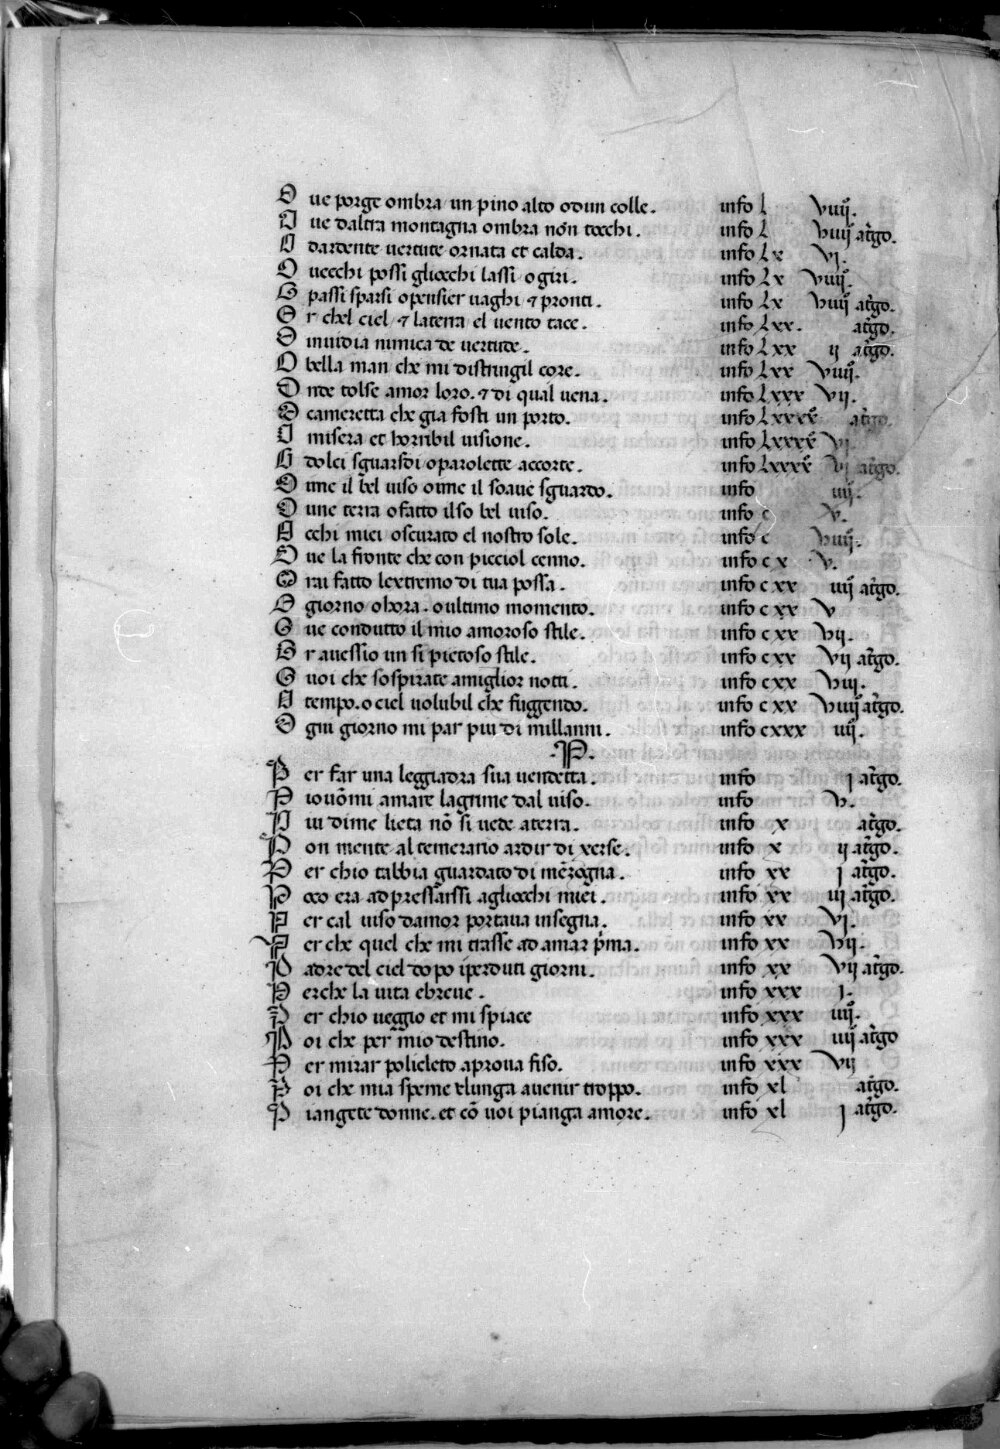 O ve porge ombra un pino alto odun colle. info l viiij.
O ve daltra montagna ombra non tocchi. info l viiij atrgo.
O dardente vertute ornata et calda. info lx vj.
O vecchi possi gliocchi lassi ogiri. info lx viiij.
O passi sparsi o pensier vaghi et pronti. info lx viiij atrgo.
O r chel ciel et laterra el vento tace. info lxx. atrgo.
O invidia nimica de vertude. info lxx ij atrgo.
O bella man che mi distringil core. info lxx viiij.
O nde tolse amor loro. et di qual vena. info lxxx vij.
O cameretta che gia fosti un porto. info lxxxx atrgo.
O misera et horribil visione. info lxxxx vj.
O dolci sguardi o parolette accorte. info lxxxx vj atrgo.
O ime il bel viso oime il soave sguardo. info iiij.
O ime terra o fatto ilso bel viso. info c v.
O cchi miei oscurato el nostro sole. info c viiij.
O ve la fronte che con picciol cenno. info c x v.
O rai fatto lextremo di tua possa. info c xx iiij atrgo.
O giorno o hora. o ultimo momento. info c xx v
O ve condutto il mio amoroso stile. info c xx vij.
O r avessio un si pietoso stile. info c xx vij atrgo.
O voi che sospirate amiglior notti. info c xx viij.
O tempo. o ciel volubil che fuggendo. info c xx viiij atrgo.
O gni giorno mi par piu di millanni. info c xxx iiij.
.P.
P er far una leggiadra sua vendetta. info j atrgo.
P iovõmi amare lagrime dal viso. info v.
P iu dime lieta nõ si vede aterra. info x atrgo.
P on mente al temerario ardir di xerse. info x ij atrgo.
P er chio tabbia guardato di mẽzogna. info xx j atrgo.
P oco era ad pressarssi agliocchi miei. info xx iij atrgo.
P er cal viso damor portava insegna. info xx vj.
P er che quel che mi trasse ad amar pma. info xx vij.
P adre del ciel dopo iperduti giorni. info xx vij atrgo.
P erche la vita e breve. info xxx j.
P er chio veggio et mi spiace info xxx iiij.
P oi che per mio destino. info xxx iiij atrgo
P er mirar policleto aprova fiso. info xxx vij
P oi che mia speme elunga avenir troppo. info xl atrgo.
P iangete donne. et cõ voi pianga amore. info xl j atrgo.